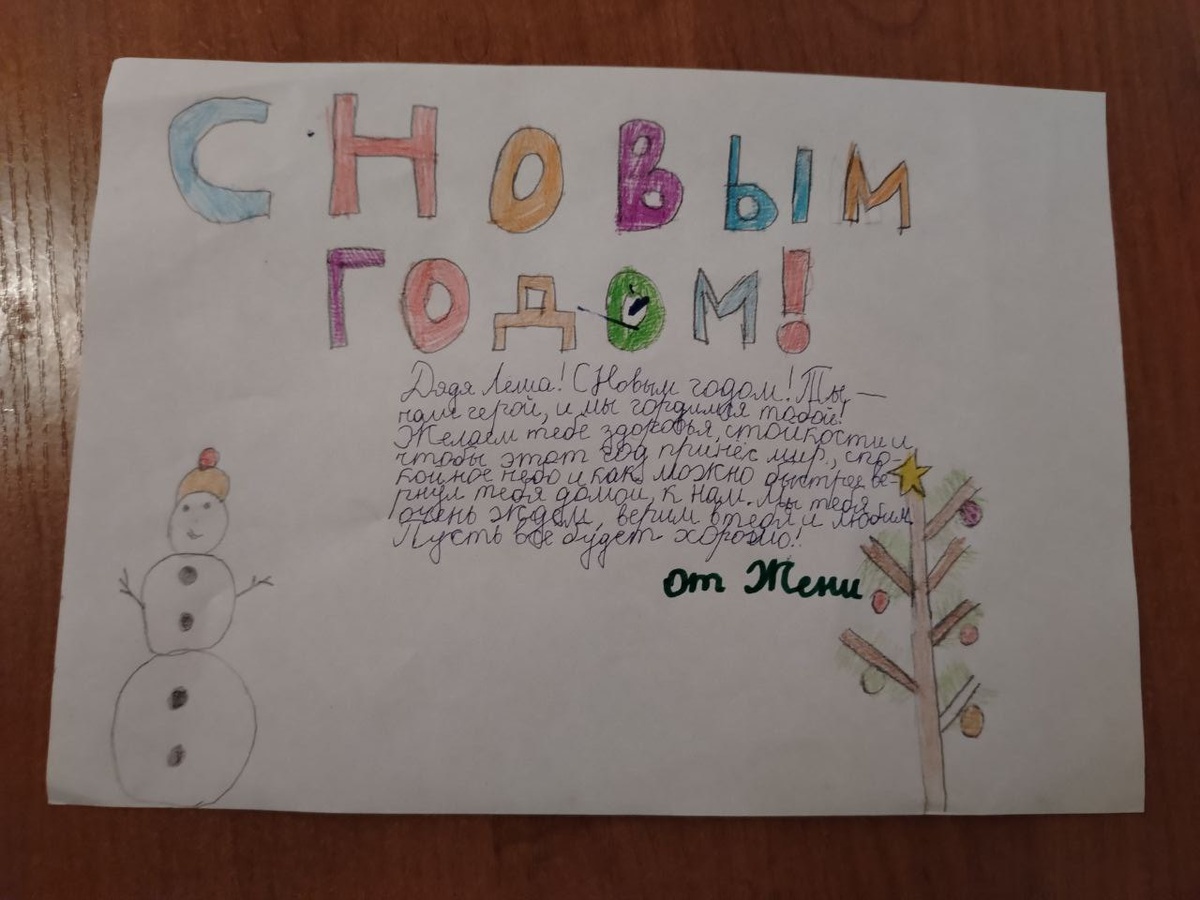 С НОВЫМ
ГОДОМ!
Дядя Лёша! С Новым годом! Ты —
наш герой, и мы гордимся тобой!
Желаем тебе здоровья, стойкости и
чтобы этот год принёс мир, спо-
койное небо и как можно быстрее ве-
рнул тебя домой, к нам. Мы тебя
очень ждём, верим в тебя и любим.
Пусть всё будет хорошо!
от Жени